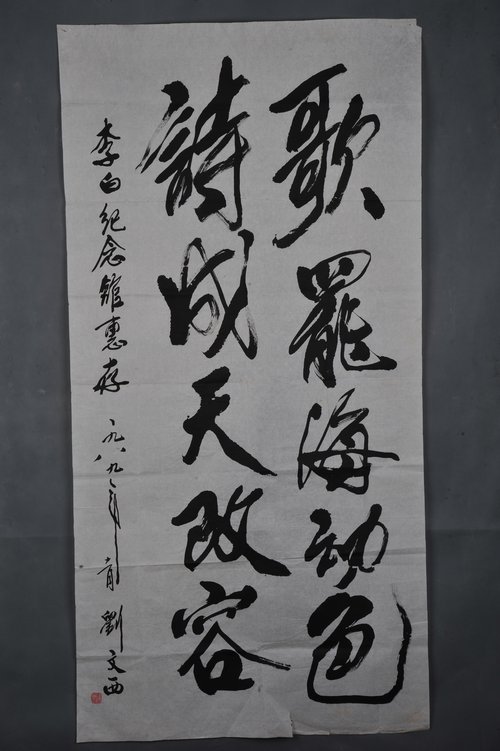 歌罷海動色
詩成天改容
李白纪念館惠存 一九八九年 肖 劉文西